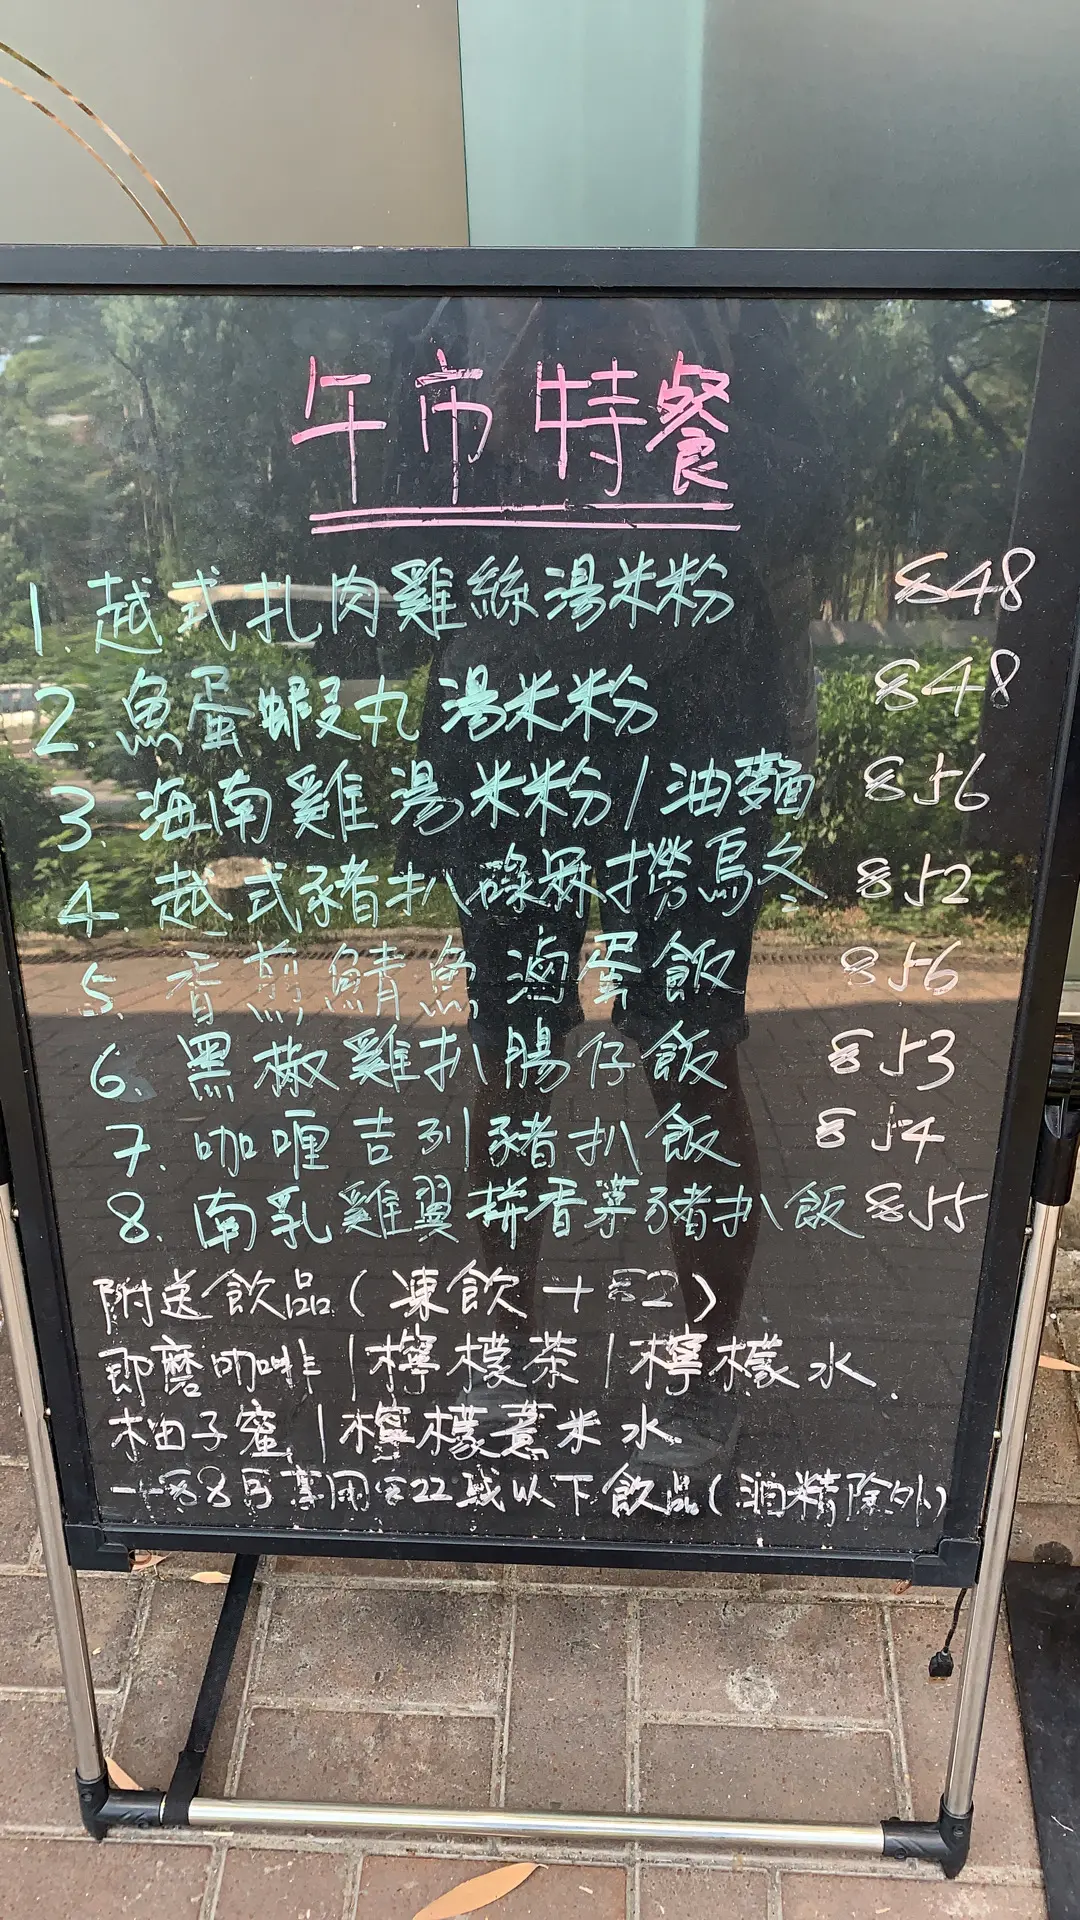 午市特餐
1. 越式扎肉雞絲湯米粉 $48
2. 魚蛋蝦丸湯米粉 $48
3. 海南雞湯米粉/油麵 $56
4. 越式豬扒碌冧撈烏冬 $52
5. 香煎鯖魚滷蛋飯 $56
6. 黑椒雞扒腸仔飯 $53
7. 咖喱吉列豬扒飯 $54
8. 南乳雞翼拼香茅豬扒飯 $55
附送飲品(凍飲+$2)
即磨咖啡/檸檬茶/檸檬水
柚子蜜/檸檬薏米水
+$8可享用$22或以下飲品(酒精除外)